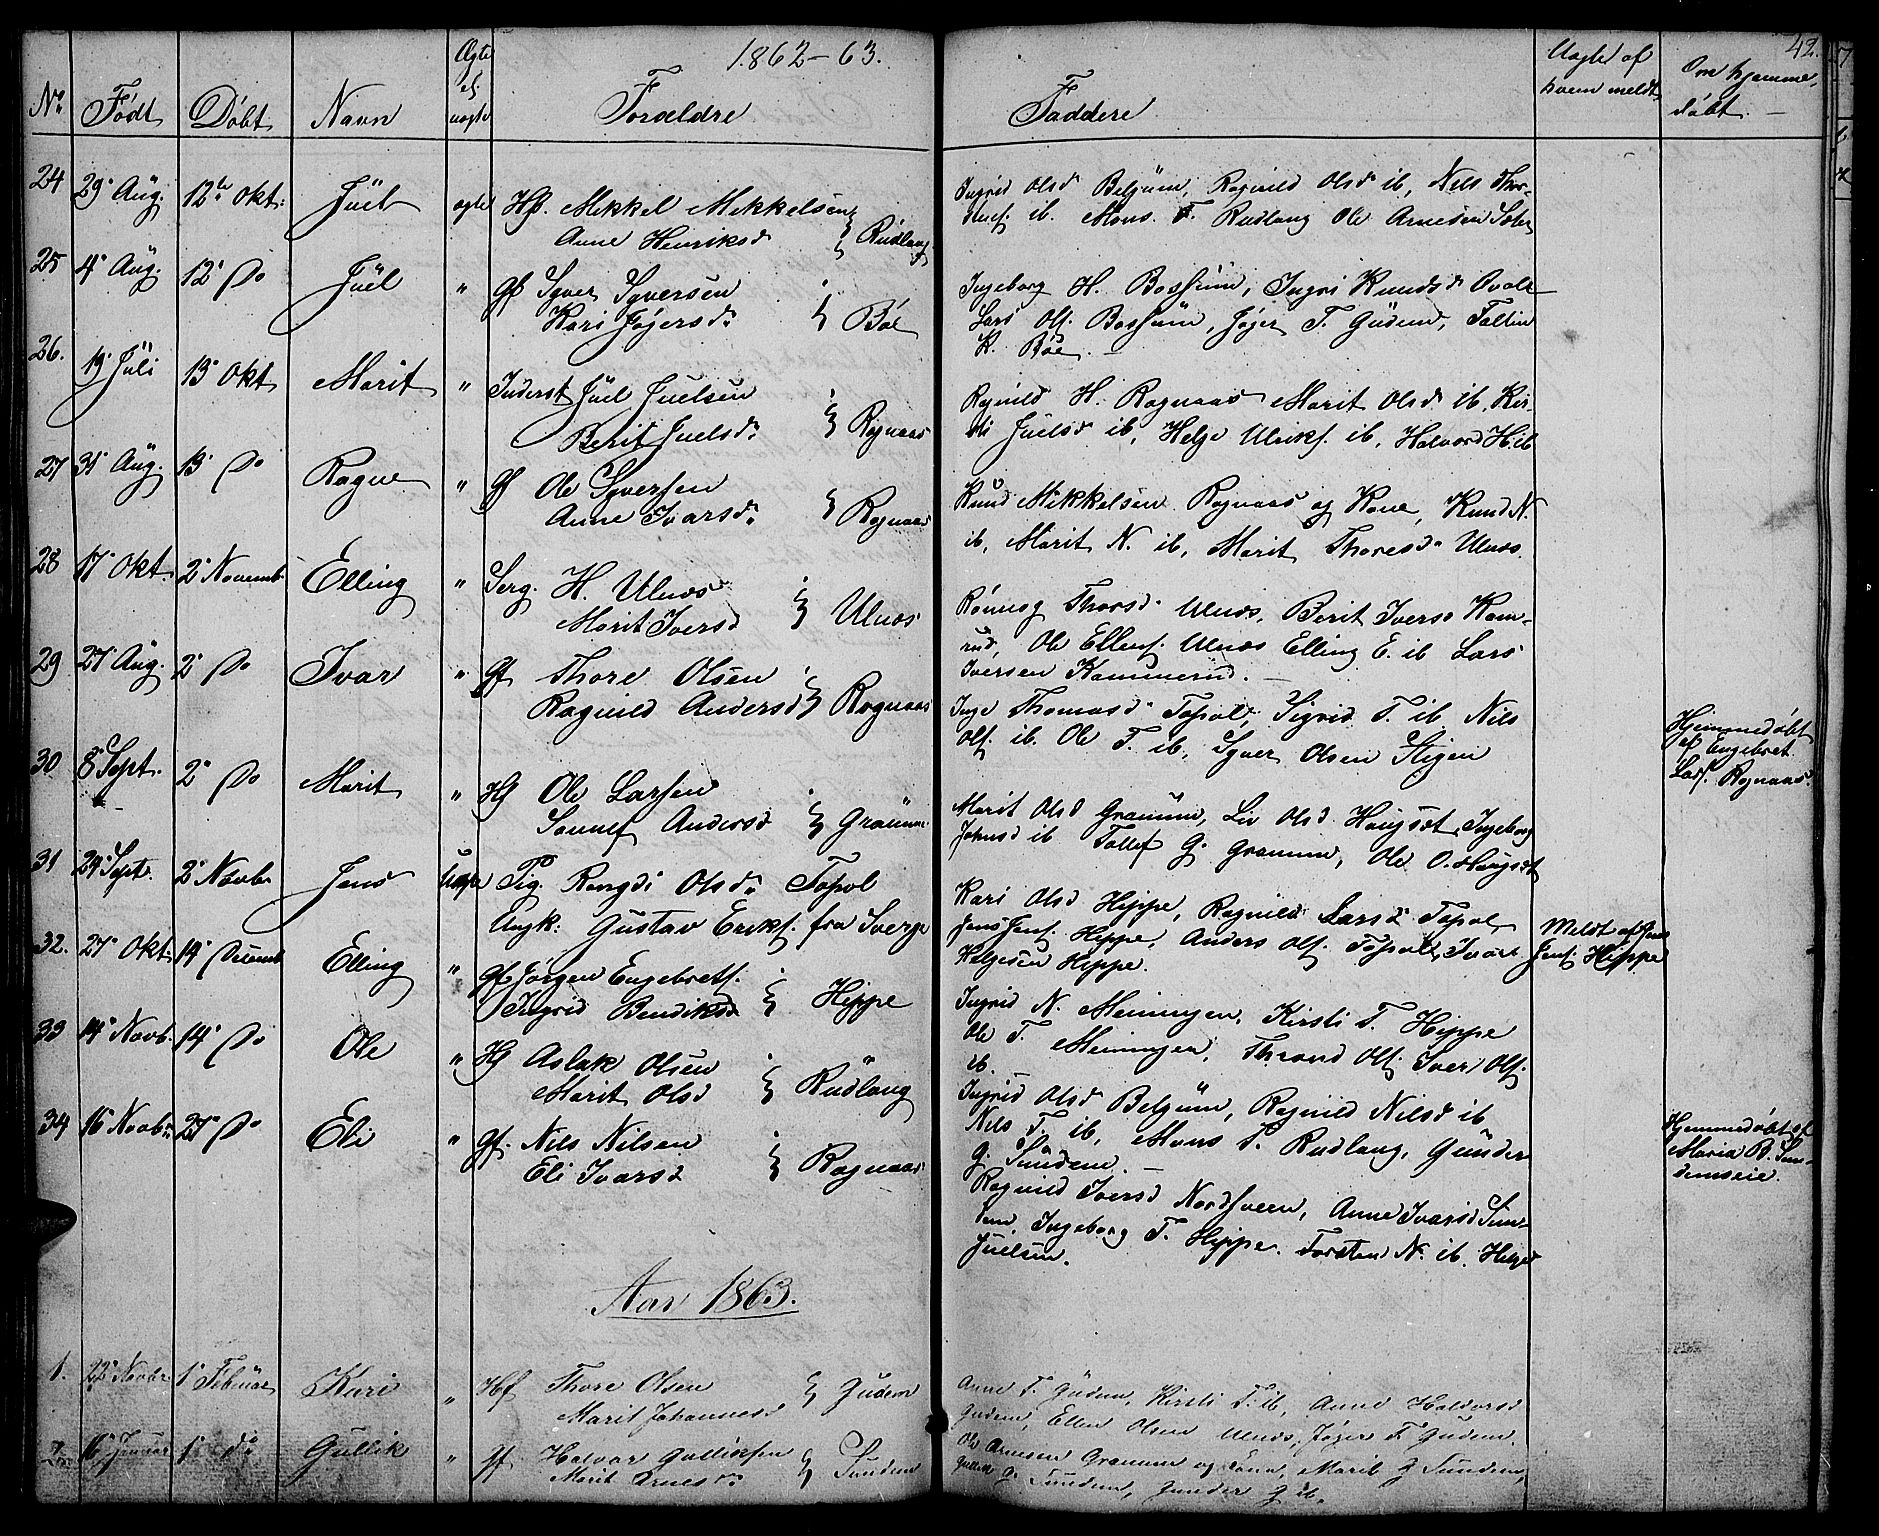 1862-63.
42.
No Födt Döbt Navn Ægte el. uægte Forældre Faddere Uægte af hvem meldt Om hjemmedöbt.
24 29 Aug. 12te Okt: Jüel ægte Hf. Mikkel Mikkelsen
Anne Henriksd Rudlang
Ingrid Olsd Belgum, Ragnild Olsd ib, Nils Thor-
ib. Mons T. Rudlang Ole Arnesen
25 4 Aug. 12 Do Jüel " Gf Syver Syversen
Kari Jögersd. Böe
Ingeborg H. Bossum, Ingri Knudsd. Ovale
Lars Ols. Bossum, Jöger T. Gudem, Tallin
K. Böe.
26. 19 Juli 13 Okt Marit " Inderst Jüel Juelsen
Berit Juelsd. Rognaas
Ragnild H. Rognaas Marit Olsd ib, Kir-
sti Juelsd ib, Helge Ulriks. ib, Halvord H. ib
27 31 Aug. 13 Do Ragne " Gf Ole Syversen
Anne Ivarsd. Rognaas
Knud Mikkelsen Rognaas og Kone, Knud N.
ib, Marit N. ib, Marit Thoresd. Ulnæs.
28 17 Okt. 2 Novemb. Elling " Serg. H. Ulnæs
Marit Iversd Ulnæs
Rönnog Thorsd. Ulnæs, Berit Iversd Kam-
rud, Ole Ellens. Ulnæs Elling E. ib Lars
Iversen Kammerud.
29 27 Aug. 2 Do Ivar " Gf Thore Olsen
Ragnild Andersd Rognaas
Inge Thomasd. Topol, Sigrid T. ib Nils
Ols. ib. Ole T. ib, Syver Olsen Stigen
Hjemmedöbt
af Engebret
Lars. Rognaas.
30 8 Sept. 2 Do Marit " Hf Ole Larsen
Andersd Gramm
Marit Olsd Gramm, Liv Olsd. Haugset, Ingeborg
Johnsd ib Tollef G. Gramm, Ole O. Haugset
31 29 Sept. 2 Novbr Jens Uægte Pig. Rangdi Olsd. Topol
Ungk. Gustav Eriks. fra Sverge
Kari Olsd Hippe, Ragnild Larsd Topol
Jens Jens. Hippe, Anders Ols. Topol, Ivar
Helgesen Hippe.
Meldt af Jens
Jens. Hippe
32. 27 Okt 14 Decemb Elling " Gf Jörgen Engebrets.
Ingrid Bendiksd Hippe
Ingrid N. Meiningen, Kirsti T. Hippe
Ole T. Meiningen, Thrond Ols. Iver Ols.
ib.
33 14 Novb. 14 Do Ole " Hf Aslak Olsen
Marit Olsd Rudlang
Ingrid Olsd Belgum, Ragnild Nilsd ib
Nils T. ib, Mons T. Rudlang, Gunder
G. Sundem.
34 16 Novbr. 27 Do Eli " Gf. Nils Nilsen
Eli Ivarsd Rognaas
Ragnild Iversd Nordsveen, Anne Ivarsd Sun-
dem, Ingeborg T. Hippe. Torsten N. ib. Helge
Juelsen.
Hjemmedöbt af
Maria B. Sun-
demseie.
Aar 1863.
1. 22 Novbr. 1 Februar Kari " Hf Thore Olsen
Marit Johannesd Gudem
Anne T. Gudem, Kirsti T. ib, Anne Haldorsd
Gudem, Ellen Olsen Ulnæs, Jöger T. Gudem.
2. 16 Januar 1 do Gullik " Gf Halvor Gulliksen
Marit Arnesd. Sundem
Ole Arnesen Gramm og Kone, Marit G Sundem,
Gullik G. Sundem, Gunder G ib.